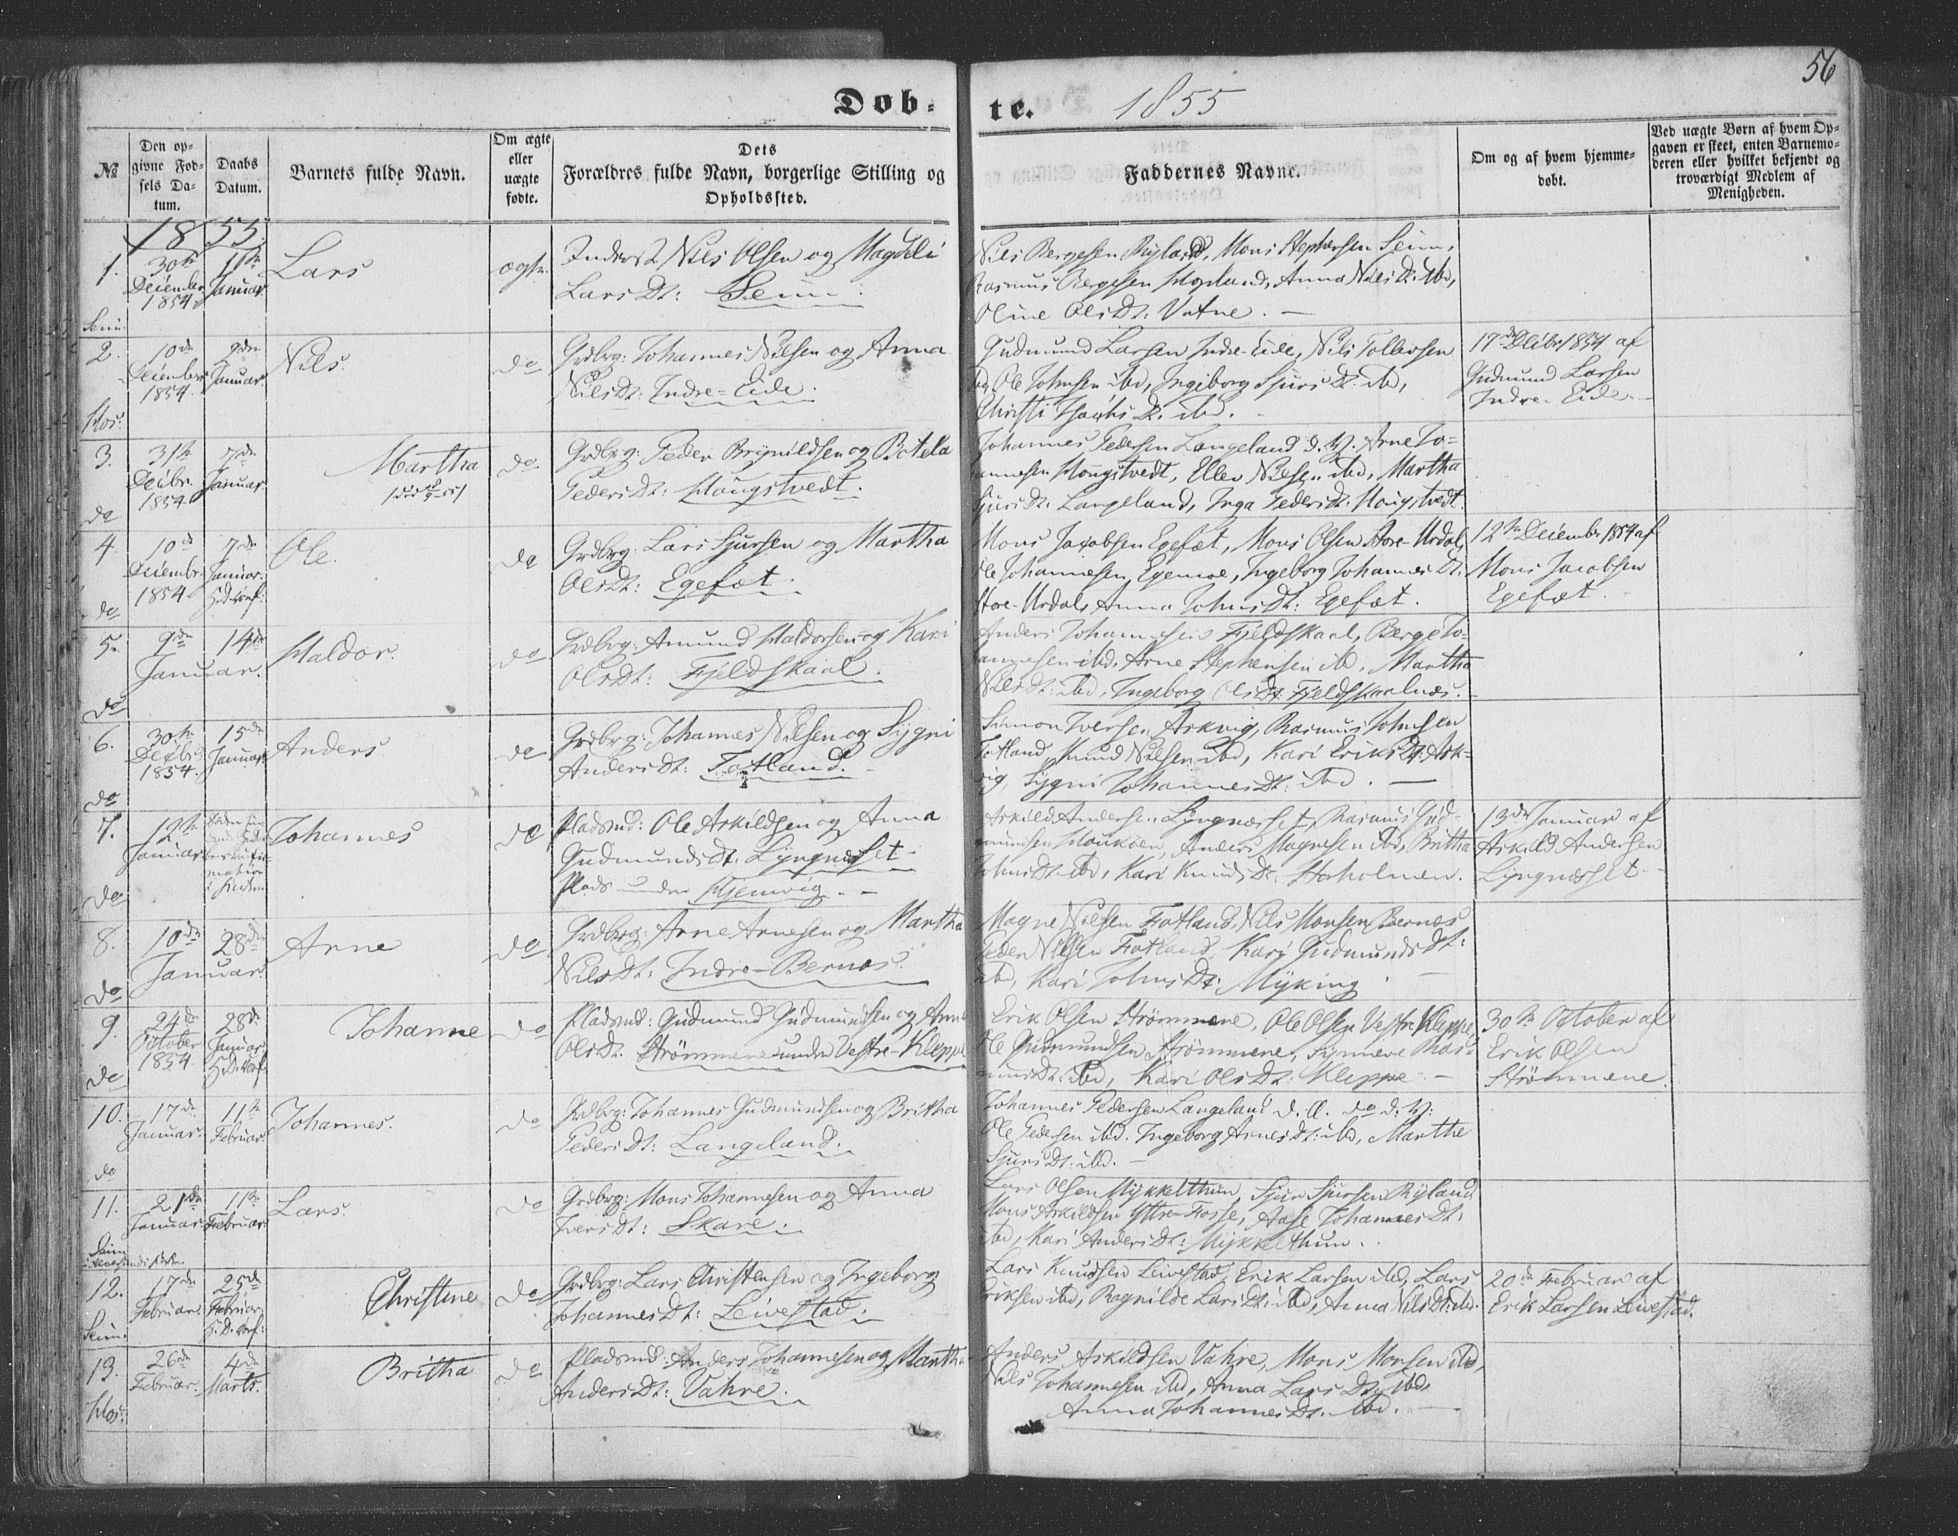 56
Døb-
te. 1855
№
Den opgivne Fødsels Datum.
Daabs Datum.
Barnets fulde Navn.
Om ægte eller uægte fødte.
Dets Forældres fulde Navn, borgerlige Stilling og Opholdssted.
Faddernes Navne.
Om og af hvem hjemmedøbt.
Ved uægte Børn af hvem Opgaven er skeet, enten Barnemoderen eller hvilket bekjendt og troværdigt Medlem af Menigheden.
1855.
1. 30te December 1854. Januar. Lars
Nils Olsen og Magdeli
Lars Dt: Seim.
Nils Bergesen Ryland, Mons Stephensen Seim,
Rasmus Bergesen Hopland, Anna Nils D. ibd,
Oline Ols Dt: Vatne. —
Seim.
2. 10de December 1854. Januar. Nils. do
Grdbrg: Johannes Nilsen og Anna
Nils Dt: Indre-Eide.
Gudmund Larsen Indre-Eide, Nils Tollevsen
Ole Johnsen ibd, Ingeborg Sjurs Dt. ibd,
Christi Jacobs D. ibd. -
17de Decbr 1854 af
Gudmund Larsen
Indre-Eide.
Hos:
3. 31te Decbr. 1854 7de Januar. Martha do
Grdbrg: Peder Brynildsen og Botilla
Peders Dt: Hougstvedt.
Johannes Pedersen Langeland d. Y. Arne Jo-
hannesen Hougstvedt, Ellev Nilsen ibd, Martha
Sjurs Dt: Langeland, Inga Peders Dt: Hougstvedt.
do
4. 10de Decembr. 1854 7de Januar. Ole. do
Grdbrg: Lars Sjursen og Martha
Ols Dt: Egefæt.
Mons Jacobsen Egefæt, Mons Olsen Store-Urdal,
Ole Johannesen Egemoe, Ingeborg Johannes Dt:
Store-Urdal, Anna Johns Dt: Egefæt.
12te December 1854 af
Mons Jacobsen
Egefæt.
do
5. 9de 14de Januar. Haldor. do
Grdbrg: Amund Haldorsen og Kari
Ols Dt: Fjeldskaal.
Anders Johannesen Fjeldskaal, Berge Jo-
hannesen ibd, Arne Stephensen ibd, Martha
Nils Dt: ibd, Ingeborg Ols Dt: Fjeldskaalnæs.
do
6. 30te Decbr. 1854. 15de Januar. Anders do
Grdbrg: Johannes Nilsen og Sygni
Anders Dt: Totland.
Simon Iversen Askvig, Rasmus Johnsen
Totland, Knud Nilsen ibd, Kari Eriks Dt: Ask-
vig, Sygni Johannes Dt: ibd. —
do
7. 12te Januar Johannes do
Pladsmd: Ole Askildsen og Anna
Gudmunds Dt: Lyngnæsset
Plads under Hjemvig. —
Askild Andersen Lyngnæsset, Rasmus Gud-
mundsen Houkøen, Anders Magnesen ibd, Britha
Johns Dt: ibd, Kari Knuds Dt: Storholmen.
13de Januar af
Askild Andersen
Lyngnæsset.
do
8. 10de 28de Januar. Arne do
Grdbrg: Arne Arnesen og Martha
Nils Dt: Indre-Bernes.
Magne Nilsen Fotland, Nils Monsen Bernes
Peder Nilsen Fotland, Kari Gudmunds Dt:
ibd, Kari Johns Dt: Myking.
do
9. 24de October 1854 28de Januar Johanne do
Pladsmd: Gudmund Gudmundsen og Anne
Ols Dt. Strømmene under Vestre-Kleppe
Erik Olsen Strømmene, Ole Olsen Vestre Kleppe,
Ole Gudmundsen Strømmene, Synneve Ras-
mus Dt: ibd, Kari Ols Dt: Kleppe —
30te October af
Erik Olsen
Strømmene.
do
10. 17de Januar. 11te Februar. Johannes. do
Grdbrg: Johannes Gudmundsen og Britha
Peders Dt: Langeland.
Johannes Pedersen Langeland d. Æ. do d. Y:
Ole Pedersen ibd. Ingeborg Arnes Dt: ibd, Marthe
Sjurs Dt: ibd. —
do
11. 21de Januar 11te Februar Lars. do
Grdbrg: Mons Johannesen og Anna
Ivers Dt: Skare.
Lars Olsen Mykkelthun, Sjur Sjursen Ryland
Mons Askildsen Yttre-Fosse, Aase Johannes Dt:
ibd, Kari Anders Dt: Mykkelthun.
Seim
12. 17de Februar. 25de Februar. Christine do
Grdbrg: Lars Christensen og Ingeborg
Johannes Dt: Leivestad.
Lars Knudsen Leivestad, Erik Larsen ibd, Lars
Eriksen ibd, Ragnilde Lars Dt: ibd, Anna Nils Dt: ibd.
20de Februar af
Erik Larsen Leivestad.
Seim.
13. 26de Februar. 4de Marts. Britha do
Pladsmd: Anders Johannesen og Martha
Anders Dt: Vahre.
Anders Askildsen Vahre, Mons Monsen ibd,
Nils Johannesen ibd, Anna Lars Dt: ibd,
Anna Johannes Dt. ibd. —
Hos: